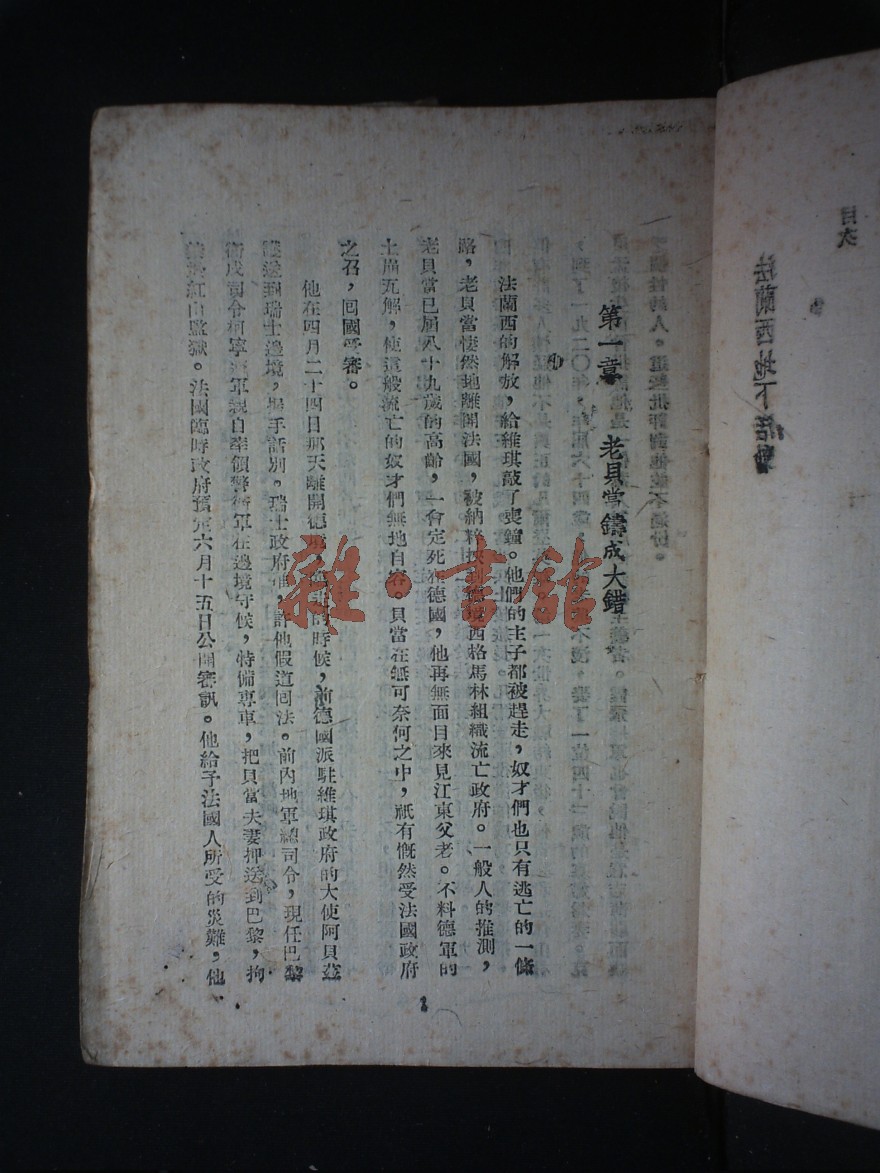 目次
法蘭西地下活動
第一章 老貝當鑄成大錯
法蘭西的解放，給維琪敲了喪鐘。他們的主子都被趕走，奴才們也只有逃亡的一條
路，老貝當悽然地離開法國，被納粹挾到德境西格馬林組織流亡政府。一般人的推測，
老貝當已屆八十九歲的高齡，一會定死在德國，他再無面目來見江東父老。不料德軍的
土崩瓦解，使這般流亡的奴才們無地自容。貝當在無可奈何之中，祇有慨然受法國政府
之召，回國受審。
他在四月二十四日那天離開德境，的時候，前德國派駐維琪政府的大使阿貝茲
護送到瑞士邊境，握手話別。瑞士政府准許他假道回法。前內地軍總司令，現任巴黎
衛戍司令柯寧將軍親自率領警衛軍在邊境守候，特備專車，把貝當夫妻押送到巴黎，拘
紅山監獄。法國臨時政府預定六月十五日公開審訊。他給予法國人所受的災難，他
1
雜·書館